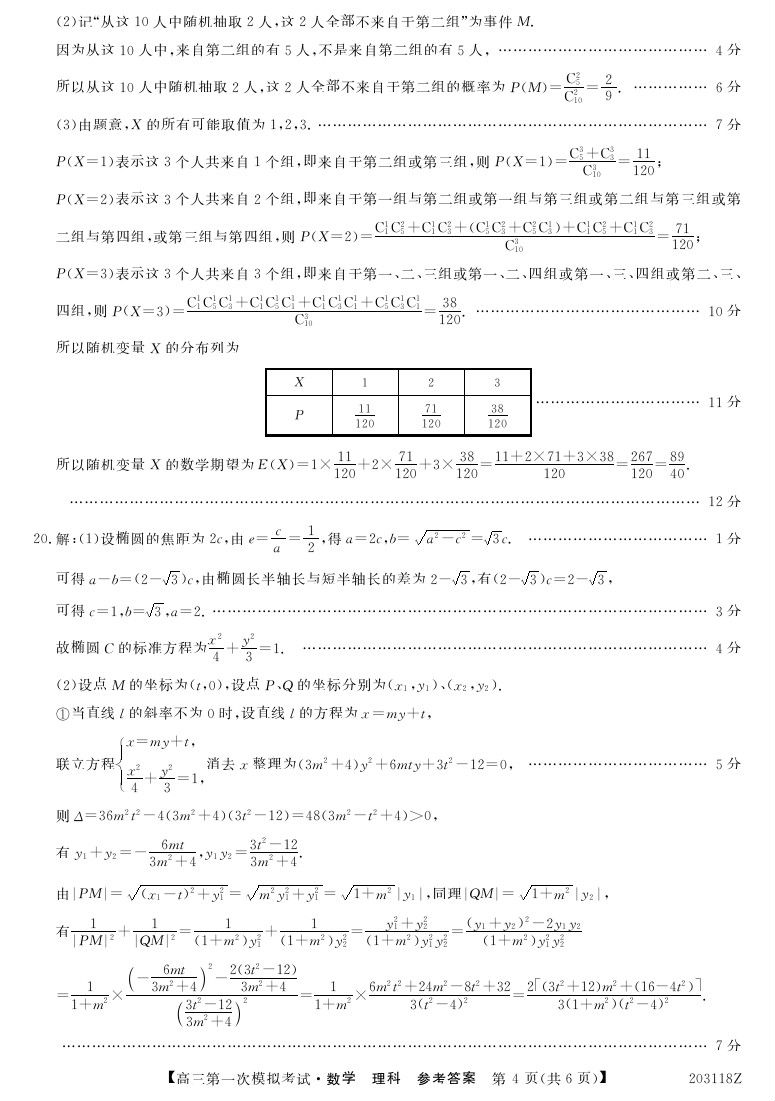 (2)记“从这10人中随机抽取2人,这2人全部不来自于第二组”为事件M.
因为从这10人中,来自第二组的有5人,不是来自第二组的有5人, …………………………………… 4分
所以从这10人中随机抽取2人,这2人全部不来自于第二组的概率为P(M)=C₅²/C₁₀²=2/9. …………… 6分
(3)由题意,X的所有可能取值为1,2,3. …………………………………………………………………… 7分
P(X=1)表示这3个人共来自1个组,即来自于第二组或第三组,则P(X=1)=(C₅³+C₃³)/C₁₀³=11/120;
P(X=2)表示这3个人共来自2个组,即来自于第一组与第二组或第一组与第三组或第二组与第三组或第
二组与第四组,或第三组与第四组,则P(X=2)=(C₁¹C₅²+C₁¹C₃²+(C₅¹C₃²+C₅²C₃¹)+C₁¹C₅²+C₁¹C₃²)/C₁₀³=71/120;
P(X=3)表示这3个人共来自3个组,即来自于第一、二、三组或第一、二、四组或第一、三、四组或第二、三、
四组,则P(X=3)=(C₁¹C₅¹C₃¹+C₁¹C₅¹C₁¹+C₁¹C₃¹C₁¹+C₅¹C₃¹C₁¹)/C₁₀³=38/120. ……………………………………… 10分
所以随机变量X的分布列为
X 1 2 3
P 11/120 71/120 38/120 …………………………… 11分
所以随机变量X的数学期望为E(X)=1×11/120+2×71/120+3×38/120=(11+2×71+3×38)/120=267/120=89/40.
…………………………………………………………………………………………………………………… 12分
20.解:(1)设椭圆的焦距为2c,由e=c/a=1/2,得a=2c,b=√(a²-c²)=√3c. ……………………………… 1分
可得a-b=(2-√3)c,由椭圆长半轴长与短半轴长的差为2-√3,有(2-√3)c=2-√3,
可得c=1,b=√3,a=2. ……………………………………………………………………………………… 3分
故椭圆C的标准方程为x²/4+y²/3=1. ……………………………………………………………………… 4分
(2)设点M的坐标为(t,0),设点P、Q的坐标分别为(x₁,y₁)、(x₂,y₂).
①当直线l的斜率不为0时,设直线l的方程为x=my+t,
联立方程{x=my+t, x²/4+y²/3=1, 消去x整理为(3m²+4)y²+6mty+3t²-12=0, ……………………………… 5分
则Δ=36m²t²-4(3m²+4)(3t²-12)=48(3m²-t²+4)>0,
有y₁+y₂=-6mt/(3m²+4),y₁y₂=(3t²-12)/(3m²+4).
由|PM|=√((x₁-t)²+y₁²)=√(m²y₁²+y₁²)=√(1+m²)|y₁|,同理|QM|=√(1+m²)|y₂|,
有1/|PM|²+1/|QM|²=1/((1+m²)y₁²)+1/((1+m²)y₂²)=(y₁²+y₂²)/((1+m²)y₁²y₂²)=((y₁+y₂)²-2y₁y₂)/((1+m²)y₁²y₂²)
=1/(1+m²)×((-6mt/(3m²+4))²-2(3t²-12)/(3m²+4))/((3t²-12)/(3m²+4))²=1/(1+m²)×(6m²t²+24m²-8t²+32)/(3(t²-4)²)=2[(3t²+12)m²+(16-4t²)]/(3(1+m²)(t²-4)²).
…………………………………………………………………………………………………………………… 7分
【高三第一次模拟考试·数学 理科 参考答案 第4页(共6页)】 203118Z